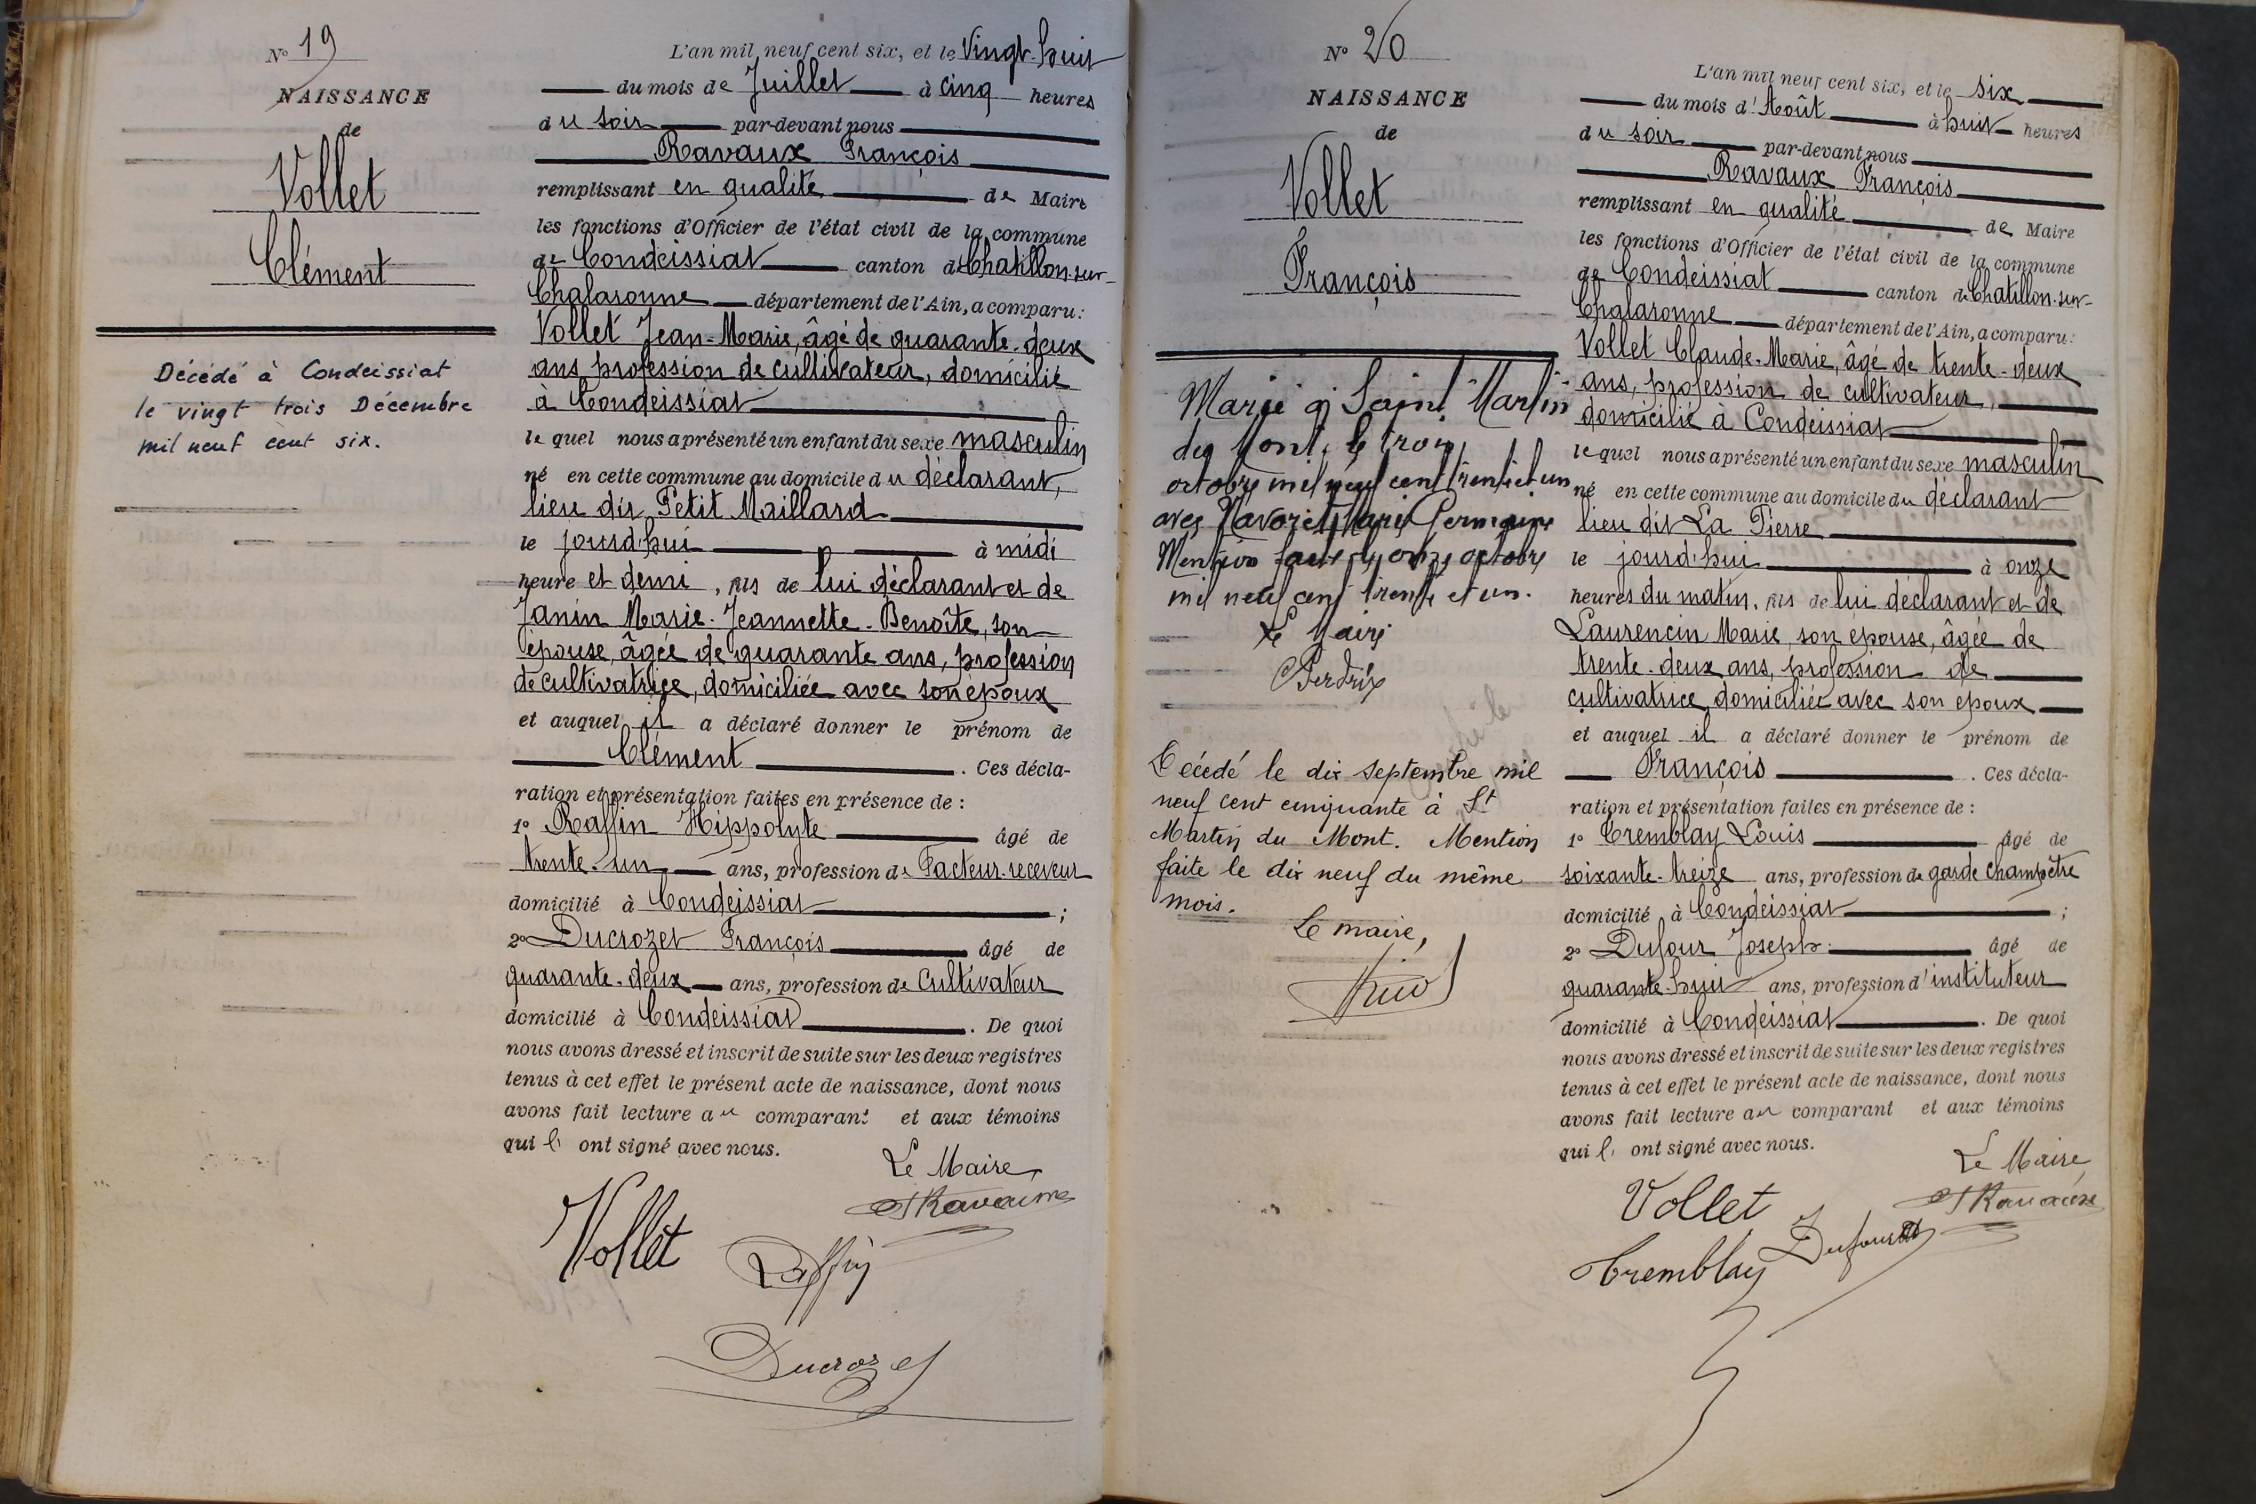 N° 19
NAISSANCE
de
Vollet
Clément
Décédé à Condeissiat
le vingt trois Décembre
mil neuf cent six.
L'an mil neuf cent six, et le Vingt-huit
du mois de Juillet à cinq heures
du soir par-devant nous
Ravaux François
remplissant en qualité de Maire
les fonctions d'Officier de l'état civil de la commune
de Condeissiat canton de Chatillon-sur-
Chalaronne département de l'Ain, a comparu:
Vollet Jean-Marie, âgé de quarante-deux
ans, profession de cultivateur, domicilié
à Condeissiat
lequel nous a présenté un enfant du sexe masculin
né en cette commune au domicile du déclarant,
lieu dit Petit Maillard
le jourd'hui à midi
heure et demi, fils de lui déclarant et de
Janin Marie-Jeannette-Benoîte, son
épouse, âgée de quarante ans, profession
de cultivatrice, domiciliée avec son époux
et auquel il a déclaré donner le prénom de
Clément. Ces décla-
ration et présentation faites en présence de :
1° Raffin Hippolyte âgé de
trente-un ans, profession de Facteur-receveur
domicilié à Condeissiat ;
2° Ducrozet François âgé de
quarante-deux ans, profession de Cultivateur
domicilié à Condeissiat. De quoi
nous avons dressé et inscrit de suite sur les deux registres
tenus à cet effet le présent acte de naissance, dont nous
avons fait lecture au comparant et aux témoins
qui l' ont signé avec nous.
Le Maire,
Ravaux
Vollet
Raffin
Ducrozet
N° 20
NAISSANCE
de
Vollet
François
Marié à Saint-Martin-
du Mont, le trois
octobre mil neuf cent trente et un
avec Navoret Marie Germaine
Mention faite le onze octobre
mil neuf cent trente et un.
Le Maire
Perdrix
Décédé le dix septembre mil
neuf cent cinquante à St
Martin du Mont. Mention
faite le dix neuf du même
mois.
Le maire,
L'an mil neuf cent six, et le six
du mois d'Août à huit heures
du soir par-devant nous
Ravaux François
remplissant en qualité de Maire
les fonctions d'Officier de l'état civil de la commune
de Condeissiat canton de Chatillon-sur-
Chalaronne département de l'Ain, a comparu:
Vollet Claude-Marie, âgé de trente-deux
ans, profession de cultivateur,
domicilié à Condeissiat
lequel nous a présenté un enfant du sexe masculin
né en cette commune au domicile du déclarant
lieu dit La Pierre
le jourd'hui à onze
heures du matin, fils de lui déclarant et de
Laurencin Marie, son épouse, âgée de
trente-deux ans, profession de
cultivatrice, domiciliée avec son époux
et auquel il a déclaré donner le prénom de
François. Ces décla-
ration et présentation faites en présence de :
1° Tremblay Louis âgé de
soixante-treize ans, profession de garde champêtre
domicilié à Condeissiat ;
2° Dufour Joseph âgé de
quarante-huit ans, profession d'instituteur
domicilié à Condeissiat. De quoi
nous avons dressé et inscrit de suite sur les deux registres
tenus à cet effet le présent acte de naissance, dont nous
avons fait lecture au comparant et aux témoins
qui l' ont signé avec nous.
Le Maire,
Ravaux
Vollet
Dufour
Tremblay